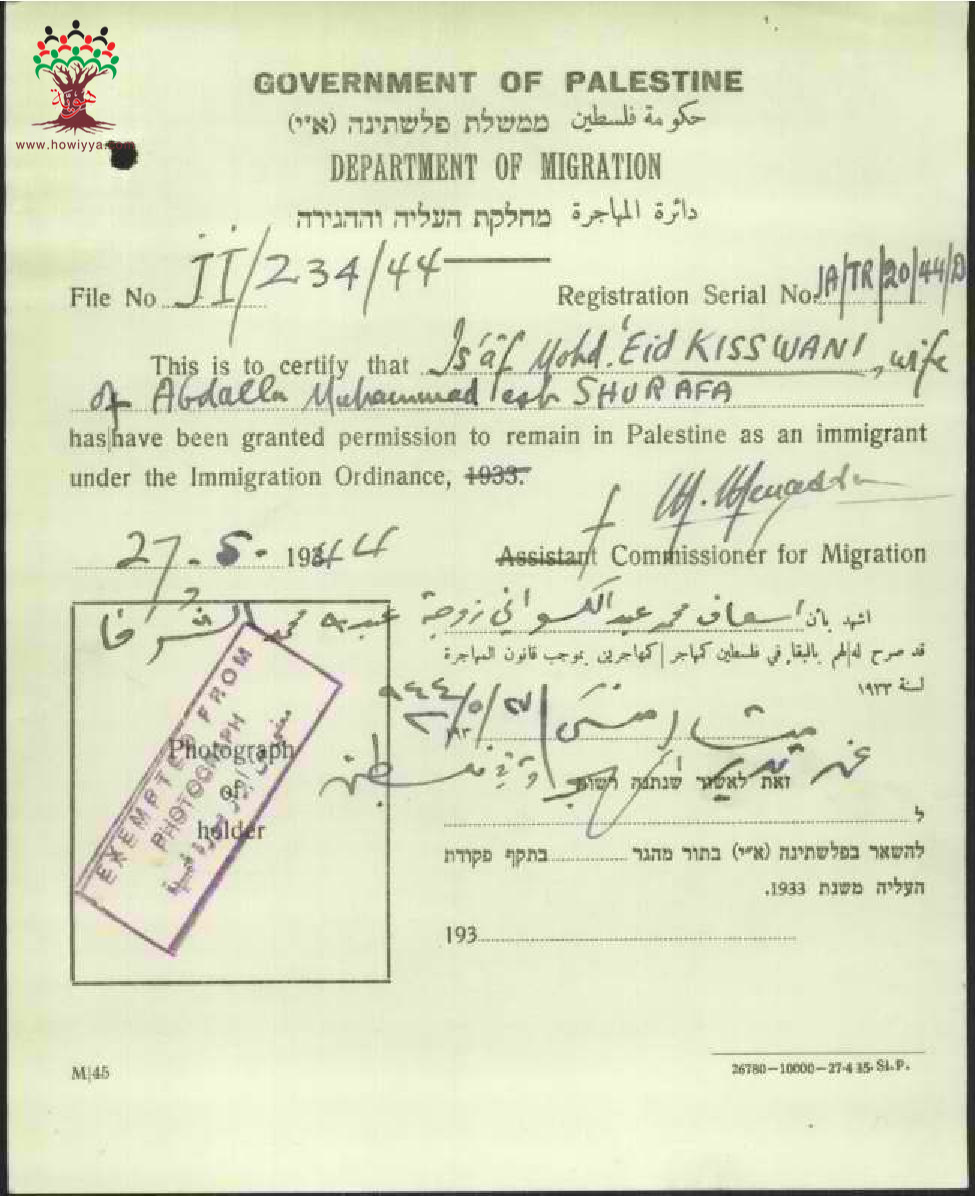 هوية
www.howiyya.com
GOVERNMENT OF PALESTINE
حكومة فلسطين ממשלת פלשתינה (א״י)
DEPARTMENT OF MIGRATION
دائرة المهاجرة מחלקת העליה וההגירה
File No JI/234/44
Registration Serial No. JA/TR/20/44/D
This is to certify that Is'af Mohd. 'Eid KISSWANI, wife
of Abdalla Muhammad esh SHURAFA
has/have been granted permission to remain in Palestine as an immigrant
under the Immigration Ordinance, 1933.
27.5. 1944
Assistant Commissioner for Migration
اشهد بأن اسعاف محمد عبد الكسواني زوجة عبد الله محمد الشرفا
قد صرح له/لهم بالبقاء في فلسطين كمهاجر/كمهاجرين بموجب قانون المهاجرة
لسنة ١٩٣٣
٢٧/٥/٩٤٤
זאת לאשור שנתנה רשות
ל
להשאר בפלשתינה (א״י) בתור מהגר בתקף פקודת
העליה משנת 1933.
193
Photograph
of
holder
EXEMPTED FROM
PHOTOGRAPH
M/45
26780—10000—27-4-35. St. P.